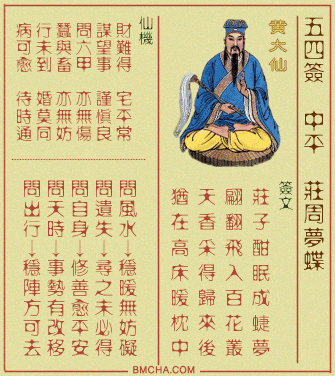 五四簽 中平 莊周夢蝶
黄大仙
簽文
莊子酣眠成蜨夢
翩翻飛入百花叢
天香采得歸來後
猶在高床暖枕中
仙機
財難得 宅平常
謀望事 謹慎良
問六甲 亦無傷
蠶與畜 亦無妨
行未到 婚莫同
病可愈 待時通
問風水→穩暖無妨礙
問遺失→尋之未必得
問自身→修善愈平安
問天時→事勢有改移
問出行→穩陣方可去
BMCHA.COM